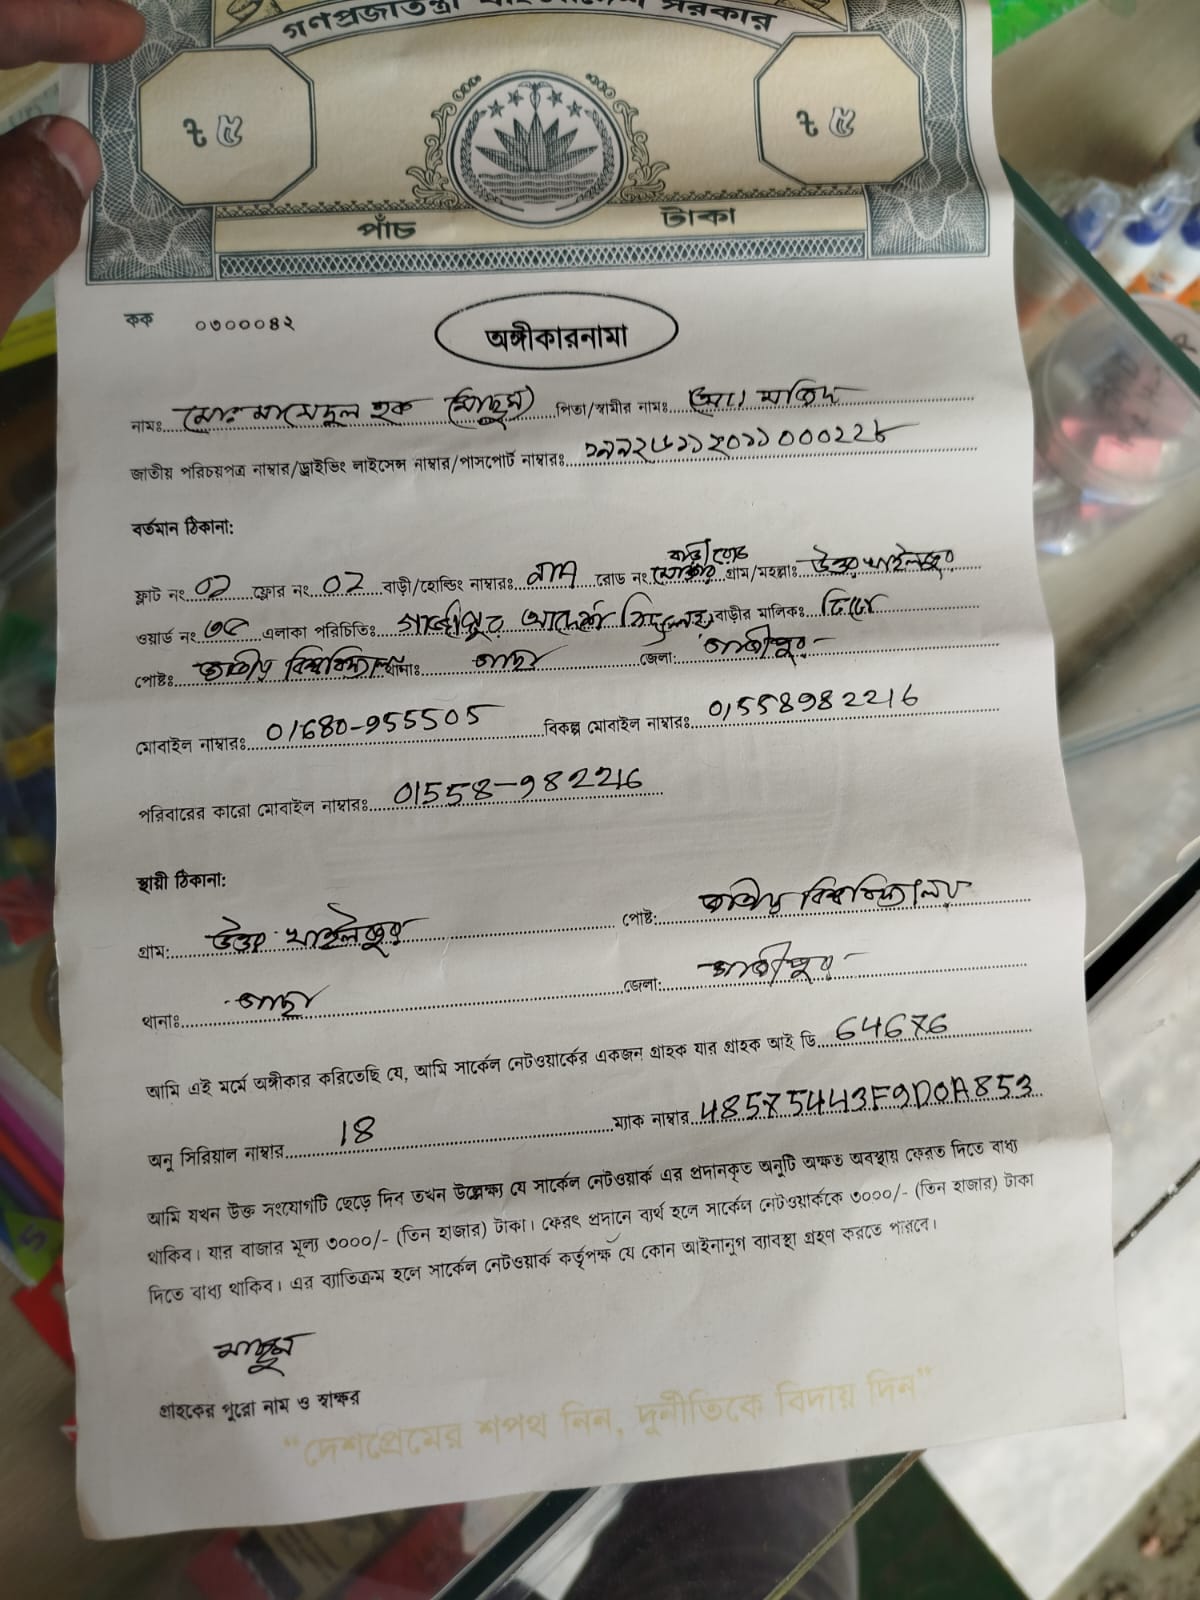 গণপ্রজাতন্ত্রী বাংলাদেশ সরকার
ট ৫ ট ৫
পাঁচ টাকা
কক ০৩০০০৪২
অঙ্গীকারনামা
নামঃ মোঃ হক (মাছুম) পিতা/স্বামীর নামঃ আঃ মজিদ
জাতীয় পরিচয়পত্র নাম্বার/ড্রাইভিং লাইসেন্স নাম্বার/পাসপোর্ট নাম্বারঃ
বর্তমান ঠিকানা:
ফ্লাট নং 02 ফ্লোর নং 02 বাড়ী/হোল্ডিং নাম্বারঃ রোড নং গ্রাম/মহল্লাঃ উত্তর খাইলকুর
ওয়ার্ড নং ৩৫ এলাকা পরিচিতিঃ গাজীপুর আদর্শ বাড়ীর মালিকঃ নিজে
পোষ্টঃ জাতীয় বিশ্ববিদ্যালয় থানাঃ গাছা জেলা: গাজীপুর
মোবাইল নাম্বারঃ 01680-955505 বিকল্প মোবাইল নাম্বারঃ 01558982216
পরিবারের কারো মোবাইল নাম্বারঃ 01558-982216
স্থায়ী ঠিকানা:
গ্রাম: উত্তর খাইলকুর পোষ্ট: জাতীয় বিশ্ববিদ্যালয়
থানাঃ গাছা জেলা: গাজীপুর
আমি এই মর্মে অঙ্গীকার করিতেছি যে, আমি সার্কেল নেটওয়ার্কের একজন গ্রাহক যার গ্রাহক আই ডি 64676
অনু সিরিয়াল নাম্বার 18 ম্যাক নাম্বার 48575443F9D0A853
আমি যখন উক্ত সংযোগটি ছেড়ে দিব তখন উল্লেক্ষ্য যে সার্কেল নেটওয়ার্ক এর প্রদানকৃত অনুটি অক্ষত অবস্থায় ফেরত দিতে বাধ্য
থাকিব। যার বাজার মূল্য ৩০০০/- (তিন হাজার) টাকা। ফেরৎ প্রদানে ব্যর্থ হলে সার্কেল নেটওয়ার্ককে ৩০০০/- (তিন হাজার) টাকা
দিতে বাধ্য থাকিব। এর ব্যাতিক্রম হলে সার্কেল নেটওয়ার্ক কর্তৃপক্ষ যে কোন আইনানুগ ব্যাবস্থা গ্রহণ করতে পারবে।
মাছুম
গ্রাহকের পুরো নাম ও স্বাক্ষর
“দেশপ্রেমের শপথ নিন, দুর্নীতিকে বিদায় দিন”